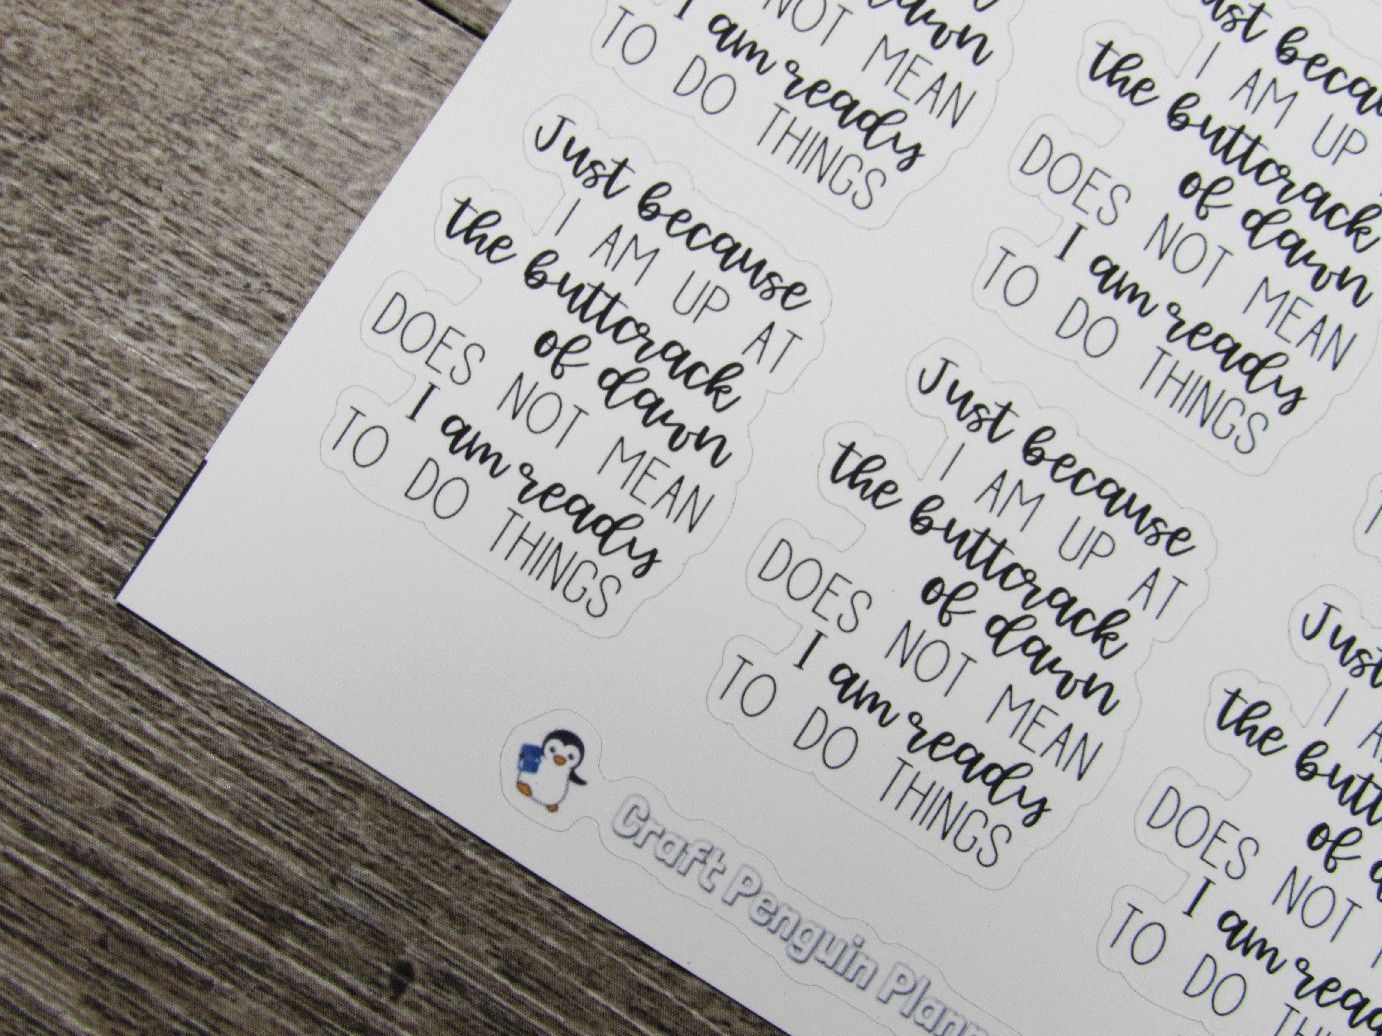 NOT MEAN
I am ready
TO DO THINGS
Just because
I AM UP AT
the buttcrack
of dawn
DOES NOT MEAN
I am ready
TO DO THINGS
I AM UP
the buttcrack
of dawn
DOES NOT MEAN
I am ready
TO DO THINGS
Just because
I AM UP AT
the buttcrack
of dawn
DOES NOT MEAN
I am ready
TO DO THINGS
Just
I
the
of
DOES NOT
I am
TO DO
Craft Penguin